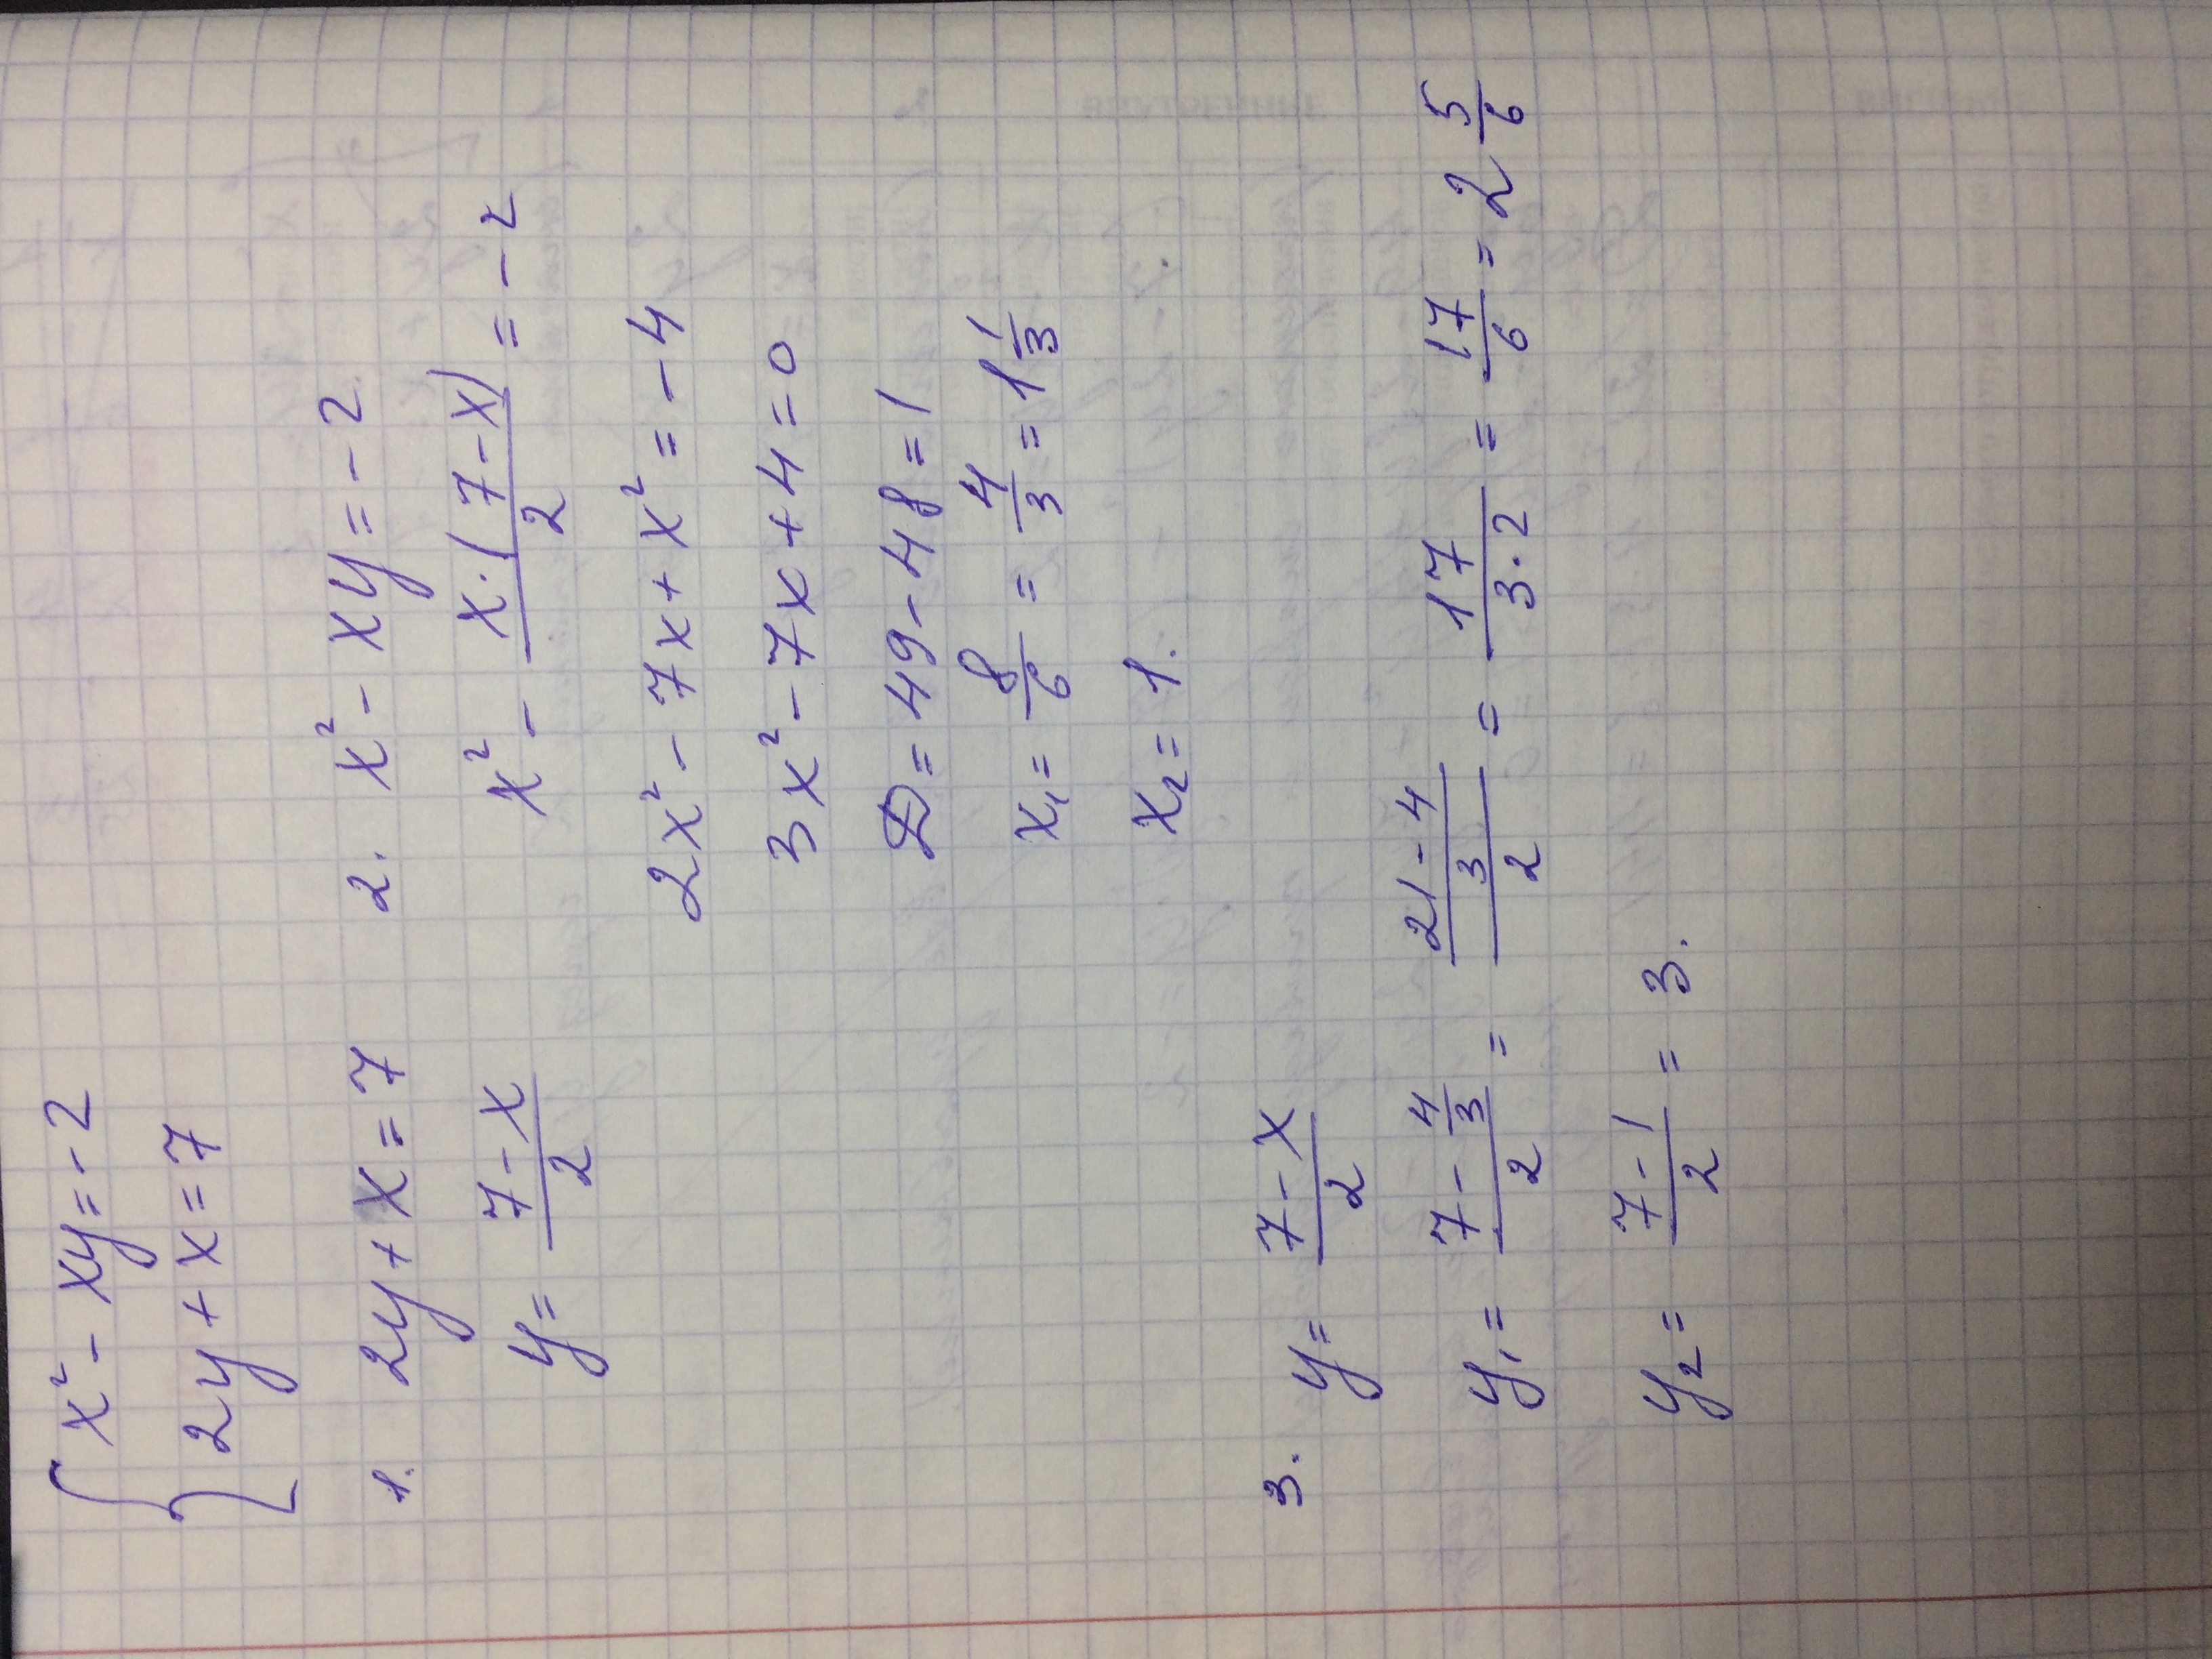 { x² - xy = -2
2y + x = 7
1. 2y + x = 7
y = (7 - x)/2
2. x² - xy = -2
x² - x·(7-x)/2 = -2
2x² - 7x + x² = -4
3x² - 7x + 4 = 0
D = 49 - 48 = 1
x₁ = 8/6 = 4/3 = 1 1/3
x₂ = 1.
3. y = (7 - x)/2
y₁ = (7 - 4/3)/2 = ((21 - 4)/3)/2 = 17/(3·2) = 17/6 = 2 5/6
y₂ = (7 - 1)/2 = 3.